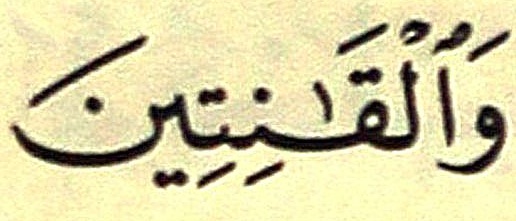 وَٱلْقَٰنِتِينَ